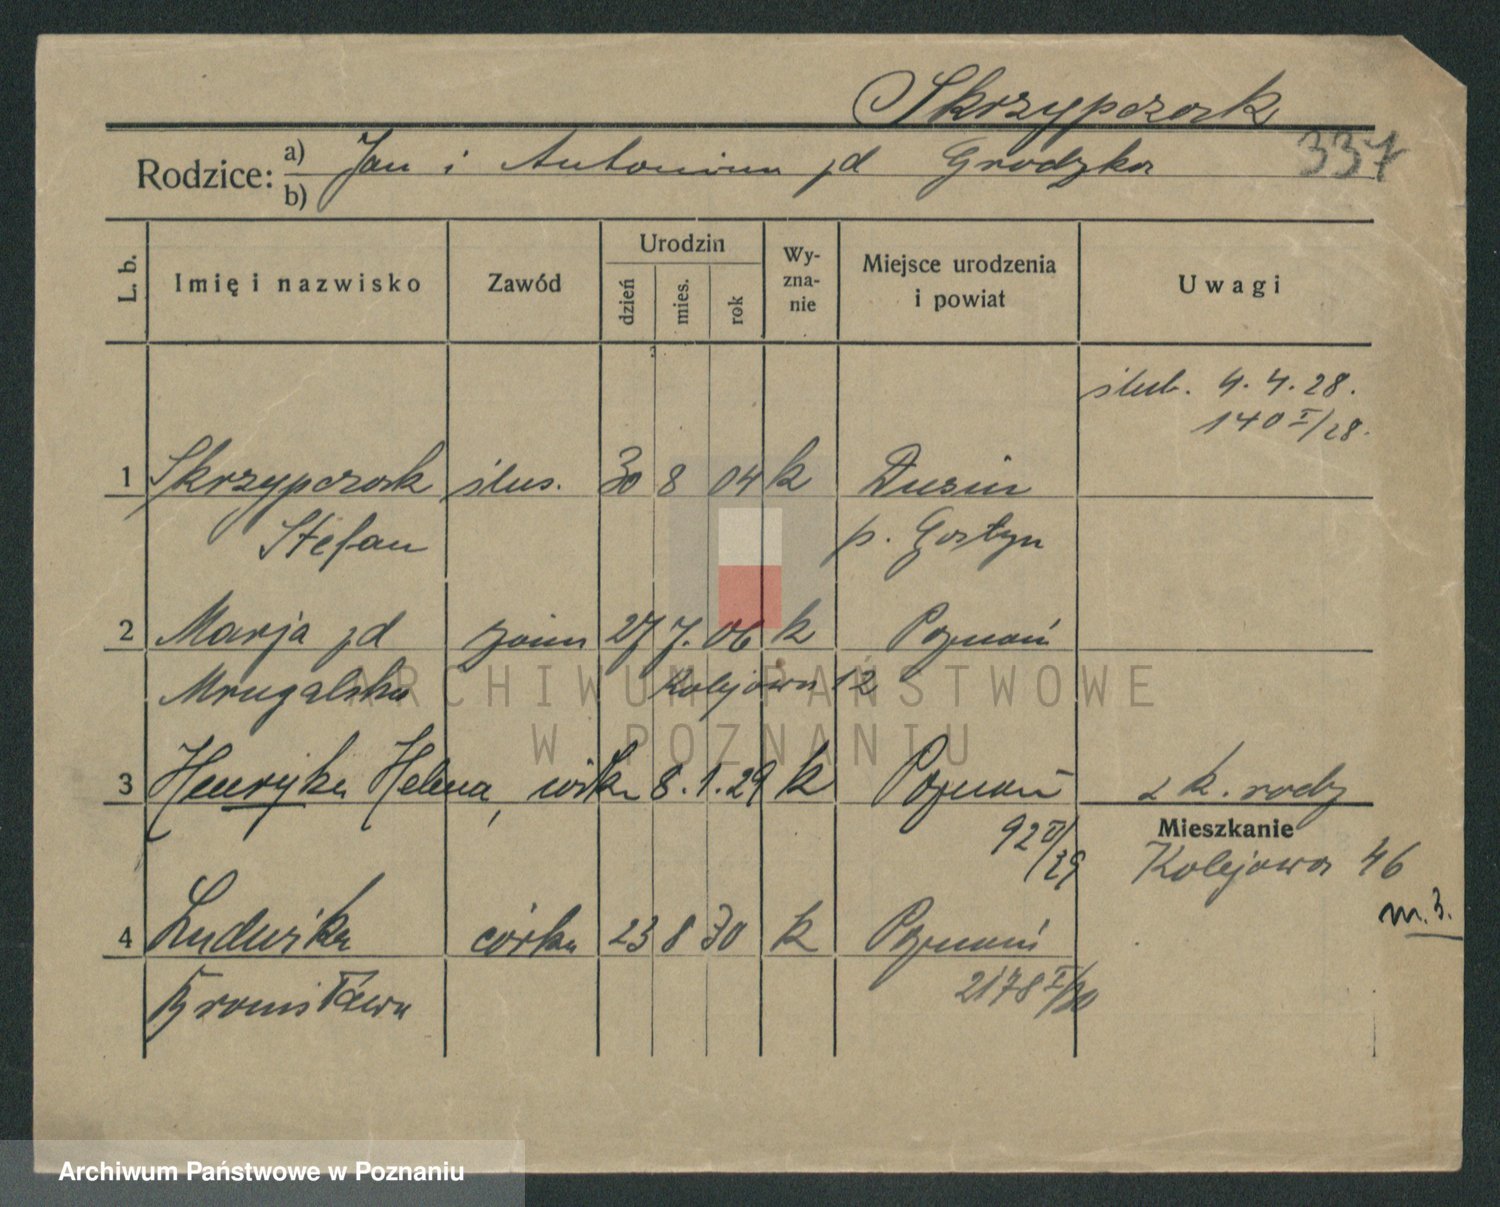 Skrzypczak
337
Rodzice: a) Jan i Antonina zd Grodzka
b)
L. b. Imię i nazwisko Zawód Urodzin dzień mies. rok Wy-zna-nie Miejsce urodzenia i powiat Uwagi
ślub. 4. 4. 28.
140 I/28.
1 Skrzypczak ślus. 30 8 04 k Dusin
Stefan p. Gostyn
2 Marja zd żona 27 7. 06 k Poznań
Mrugalska Kolejowa 12
3 Henryka Helena, 8. 1. 29 k Poznań z k. rodz
92 /29
Mieszkanie
Kolejowa 46
m. 3.
4 Ludwika córka 23 8 30 k Poznań
Bronisława 2178 I/30
ARCHIWUM PAŃSTWOWE
W POZNANIU
Archiwum Państwowe w Poznaniu